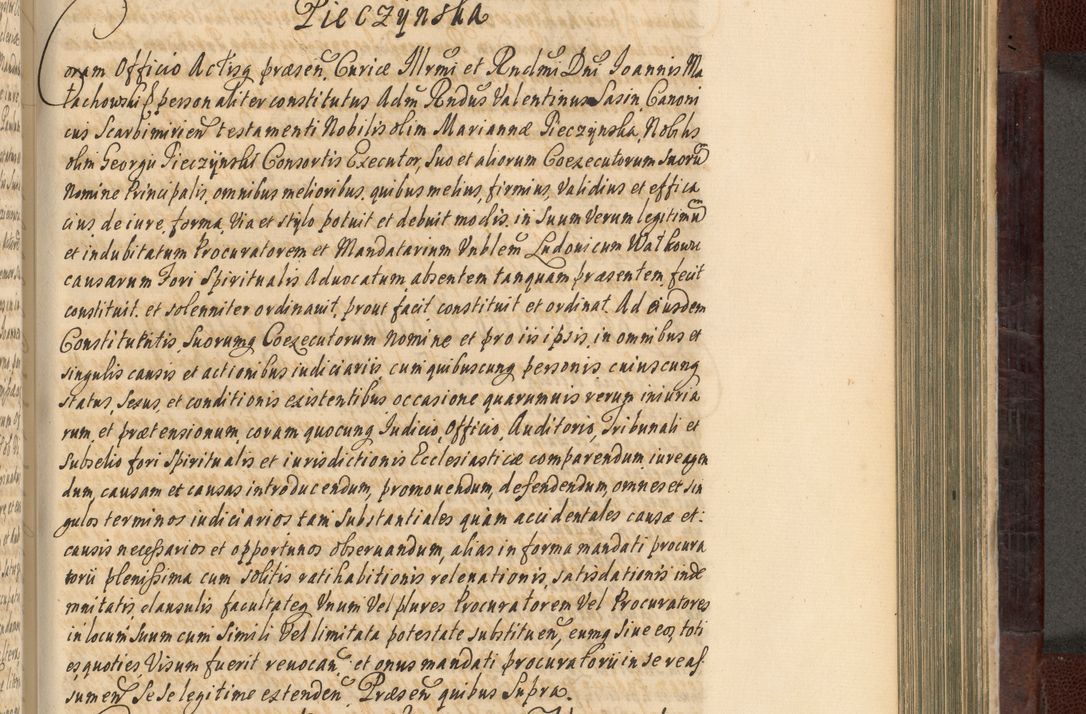 Pieczÿnska
oram Officio Actisq præsen, Curiæ Illrmi et Rndmi Dni Joannis Ma
łachowski personaliter constitutus Adm Rndus Valentinus Sasin Canoni
cus Scarbimirien testamenti Nobilis olim Mariannæ Pieczÿnska, Nobilis
olim Georgii Pieczÿnski Consortis Executor, Suo et aliorum Coexecutorum suorũ
Nomine Principalis, omnibus melioribus, quibus melius, firmius, Validius et effica
cius, de iure, forma, Via et stylo potuit et debuit modis, in Suum Verum legitimũ
et indubitatum Procuratorem et Mandatarium Nnblem Ludovicum Wałkowic
causarum Fori Spiritualis Advocatum, absentem tanquam præsentem, fecit
constituit, et solenniter ordinavit, prout facit, constituit et ordinat. Ad eiusdem
Constituentis, Suorumq Coexecutorum Nomine et pro iis ipsis, in omnibus et
singulis causis et actionibus iudiciariis, cum quibuscunq personis, cuiuscunq
status, Sexus, et conditionis existentibus occasione quarumvis rerum iniuria
rum, et prætensionum, coram quocunq Iudicio, Officio, Auditorio, Tribunali et
Subselio fori Spiritualis et iurisdictionis Ecclesiasticæ comparendum, iure agen
dum, causam et causas introducendum, promovendum, defendendum, omnes et sin
gulos terminos iudiciarios tam Substantiales quàm accidentales causæ et
causis necessarios et opportunos observandum, alias in forma mandati procura
torii plenissima cum solitis ratihabitionis relevationis, satisdationis inde
mnitatis, clausulis facultateq Vnum Vel plures Procuratorem Vel Procuratores
in locum Suum cum Simili Vel limitata potestate substituen, eumq Sive eos, toti
es, quoties Visum fuerit revocan, et onus mandati procuratorii in se reas
sumen, Se Se legitime extenden, Præsen quibus Supra.